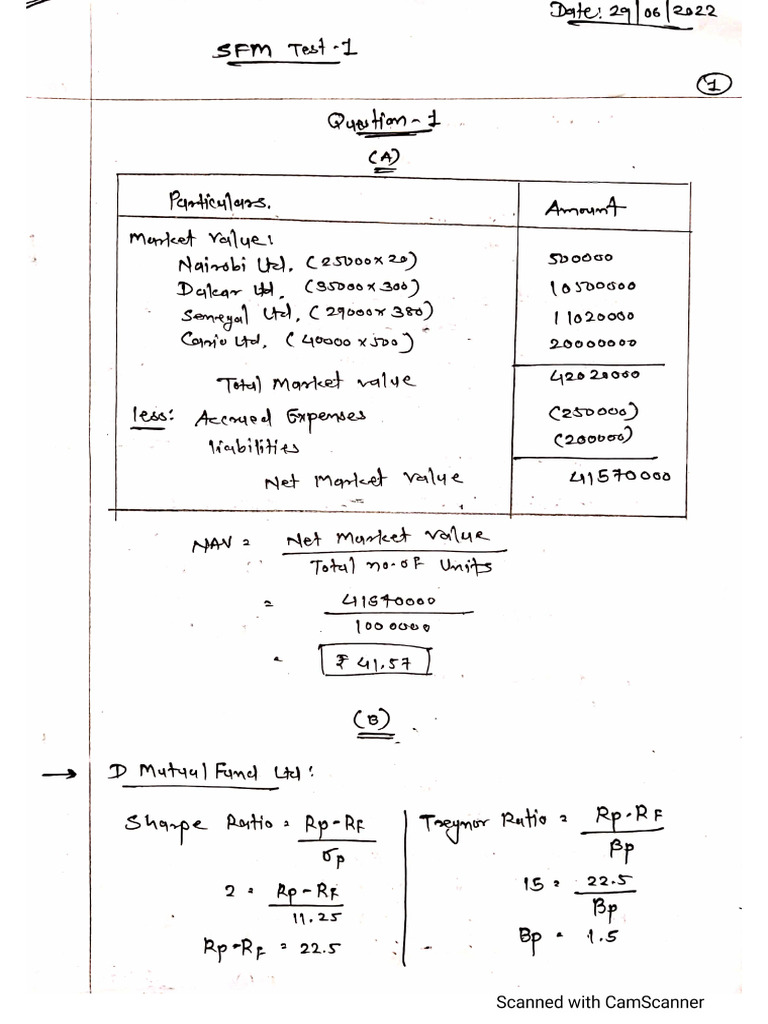 Date: 29/06/2022
SFM Test-1
1
Question-1
(A)
Particulars. Amount
Market value:
Nairobi Ltd, (25000×20) 500000
Dakar Ltd, (35000×300) 10500000
Senegal Ltd, (29000×380) 11020000
Cario Ltd, (40000×500) 20000000
Total Market value 42020000
less: Accrued Expenses (250000)
liabilities (200000)
Net Market value 41570000
NAV = Net Market value
Total no. of Units
= 41570000
1000000
= ₹ 41.57
(B)
→ D Mutual Fund Ltd:
Sharpe Ratio = Rp-RF
σp
2 = Rp-RF
11.25
Rp-RF = 22.5
Treynor Ratio = Rp-RF
βp
15 = 22.5
βp
Bp = 1.5
Scanned with CamScanner